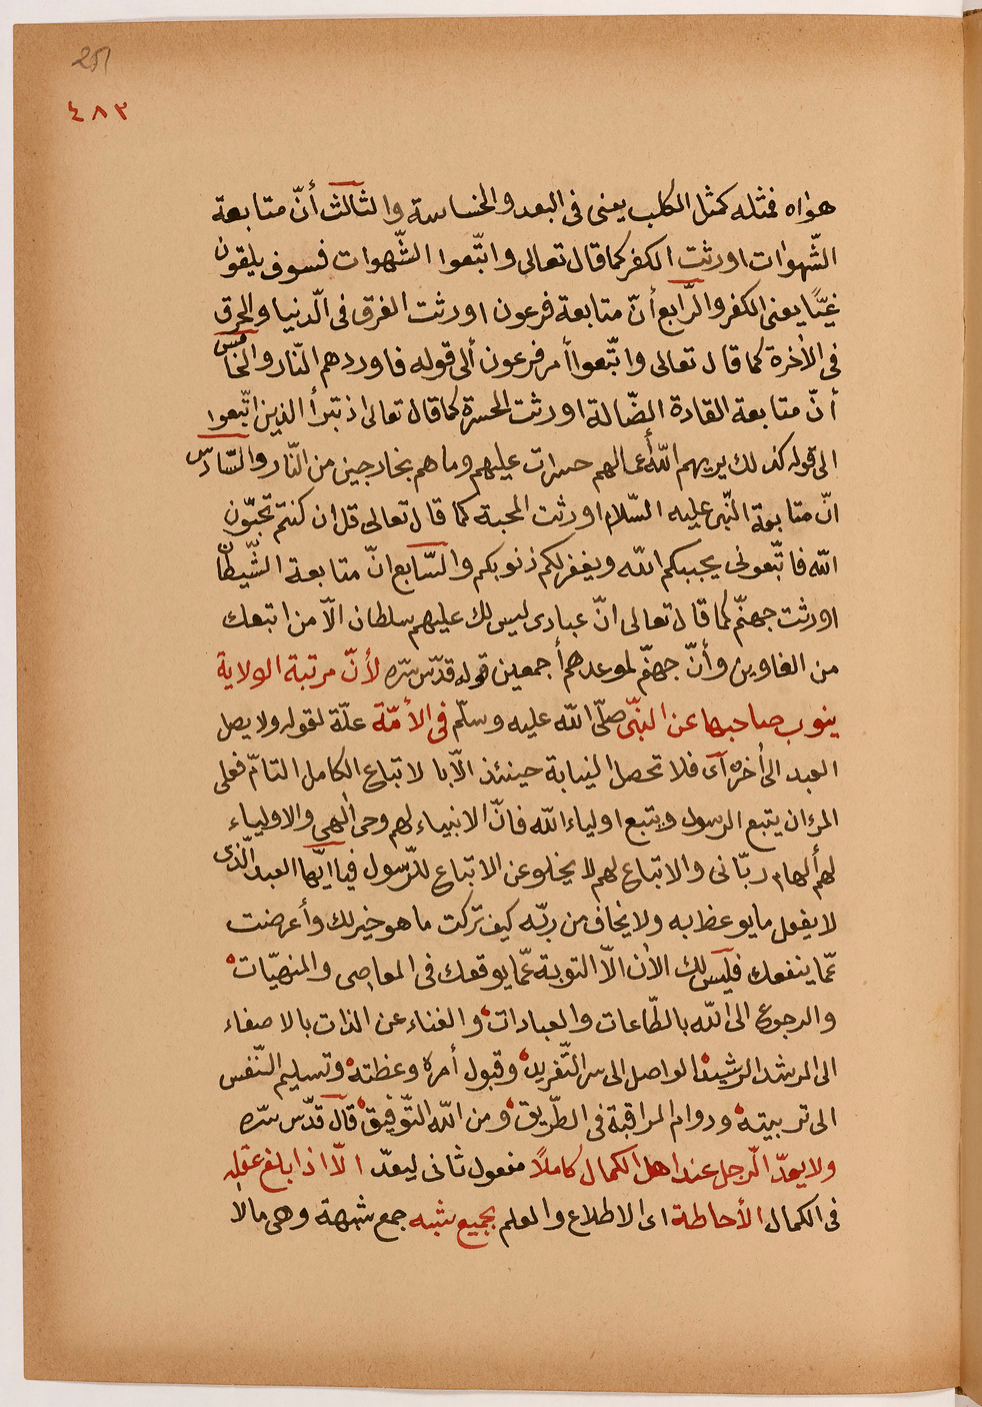 251
٤٨٣
هواه فمثله كمثل الكلب يعنى فى البعد والخساسة والثالث أنّ متابعة
الشّهوات اورثت الكفر كما قال تعالى واتّبعوا الشّهوات فسوف يلقون
غيّا يعنى الكفر والرّابع أنّ متابعة فرعون اورثت الغرق فى الّدنيا والحرق
فى الأخرة كما قال تعالى واتّبعوا أمر فرعون ألى قوله فاوردهم النّار والخامس
أنّ متابعة القادة الضّالة اورثت الحسرة كما قال تعالى اذ تبرأ الذين اتّبعوا
الى قوله كذلك يريهم اللّه أعمالهم حسرات عليهم وما هم بخارجين من النّار والسّادس
انّ متابعة النّبى عليه السّلام اورثت المحبة كما قال تعالى قل ان كنتم تحبّون
اللّه فاتّبعونى يحببكم اللّه ويغفر لكم ذنوبكم والسّابع انّ متابعة الشّيطان
اورثت جهنّم كما قال تعالى انّ عبادى ليس لك عليهم سلطان الّا من اتبعك
من الغاوين وأنّ جهنّم لموعدهم أجمعين قوله قدّس سّره لأنّ مرتبة الولاية
ينوب صاحبها عن النبّى صلّى اللّه عليه وسلّم فى الأمّة علّة لقوله ولا يصل
العبد الى أخره أى فلا تحصل النيابة حينئذ الّا بالاتباع الكامل التامّ فعلى
المرء ان يتبع الرسول ويتبع اولياء اللّه فانّ الانبياء لهم وحى الٰهى والاولياء
لهم ألهام ربّانى والاتباع لهم لا يخلو عن الاتباع للرّسول فيا ايّها العبد الّذى
لا يفعل ما يوعظ به ولا يخاف من ربّه كيف تركت ما هو خير لك وأعرضت
عمّا ينفعك فليس لك الأن الّا التوبة عمّا يوقعك فى المعاصى والمنهيّات
والرجوع الى اللّه بالطّاعات والعبادات والفناء عن الذات بالاصغاء
الى المرشد الرشيد الواصل الى سر التّفريد وقبول أمره وعظته وتسليم النّفس
الى تربيته ودوام المراقبة فى الطّريق ومن اللّه التّوفيق قال قدّس سّره
ولا يعدّ الّرجل عند اهل الكمال كاملًا مفعول ثانى ليعدّ الّا اذا بلغ عقله
فى الكمال الأحاطة اى الاطلاع والعلم بجميع شبه جمع شبهة وهى مالا